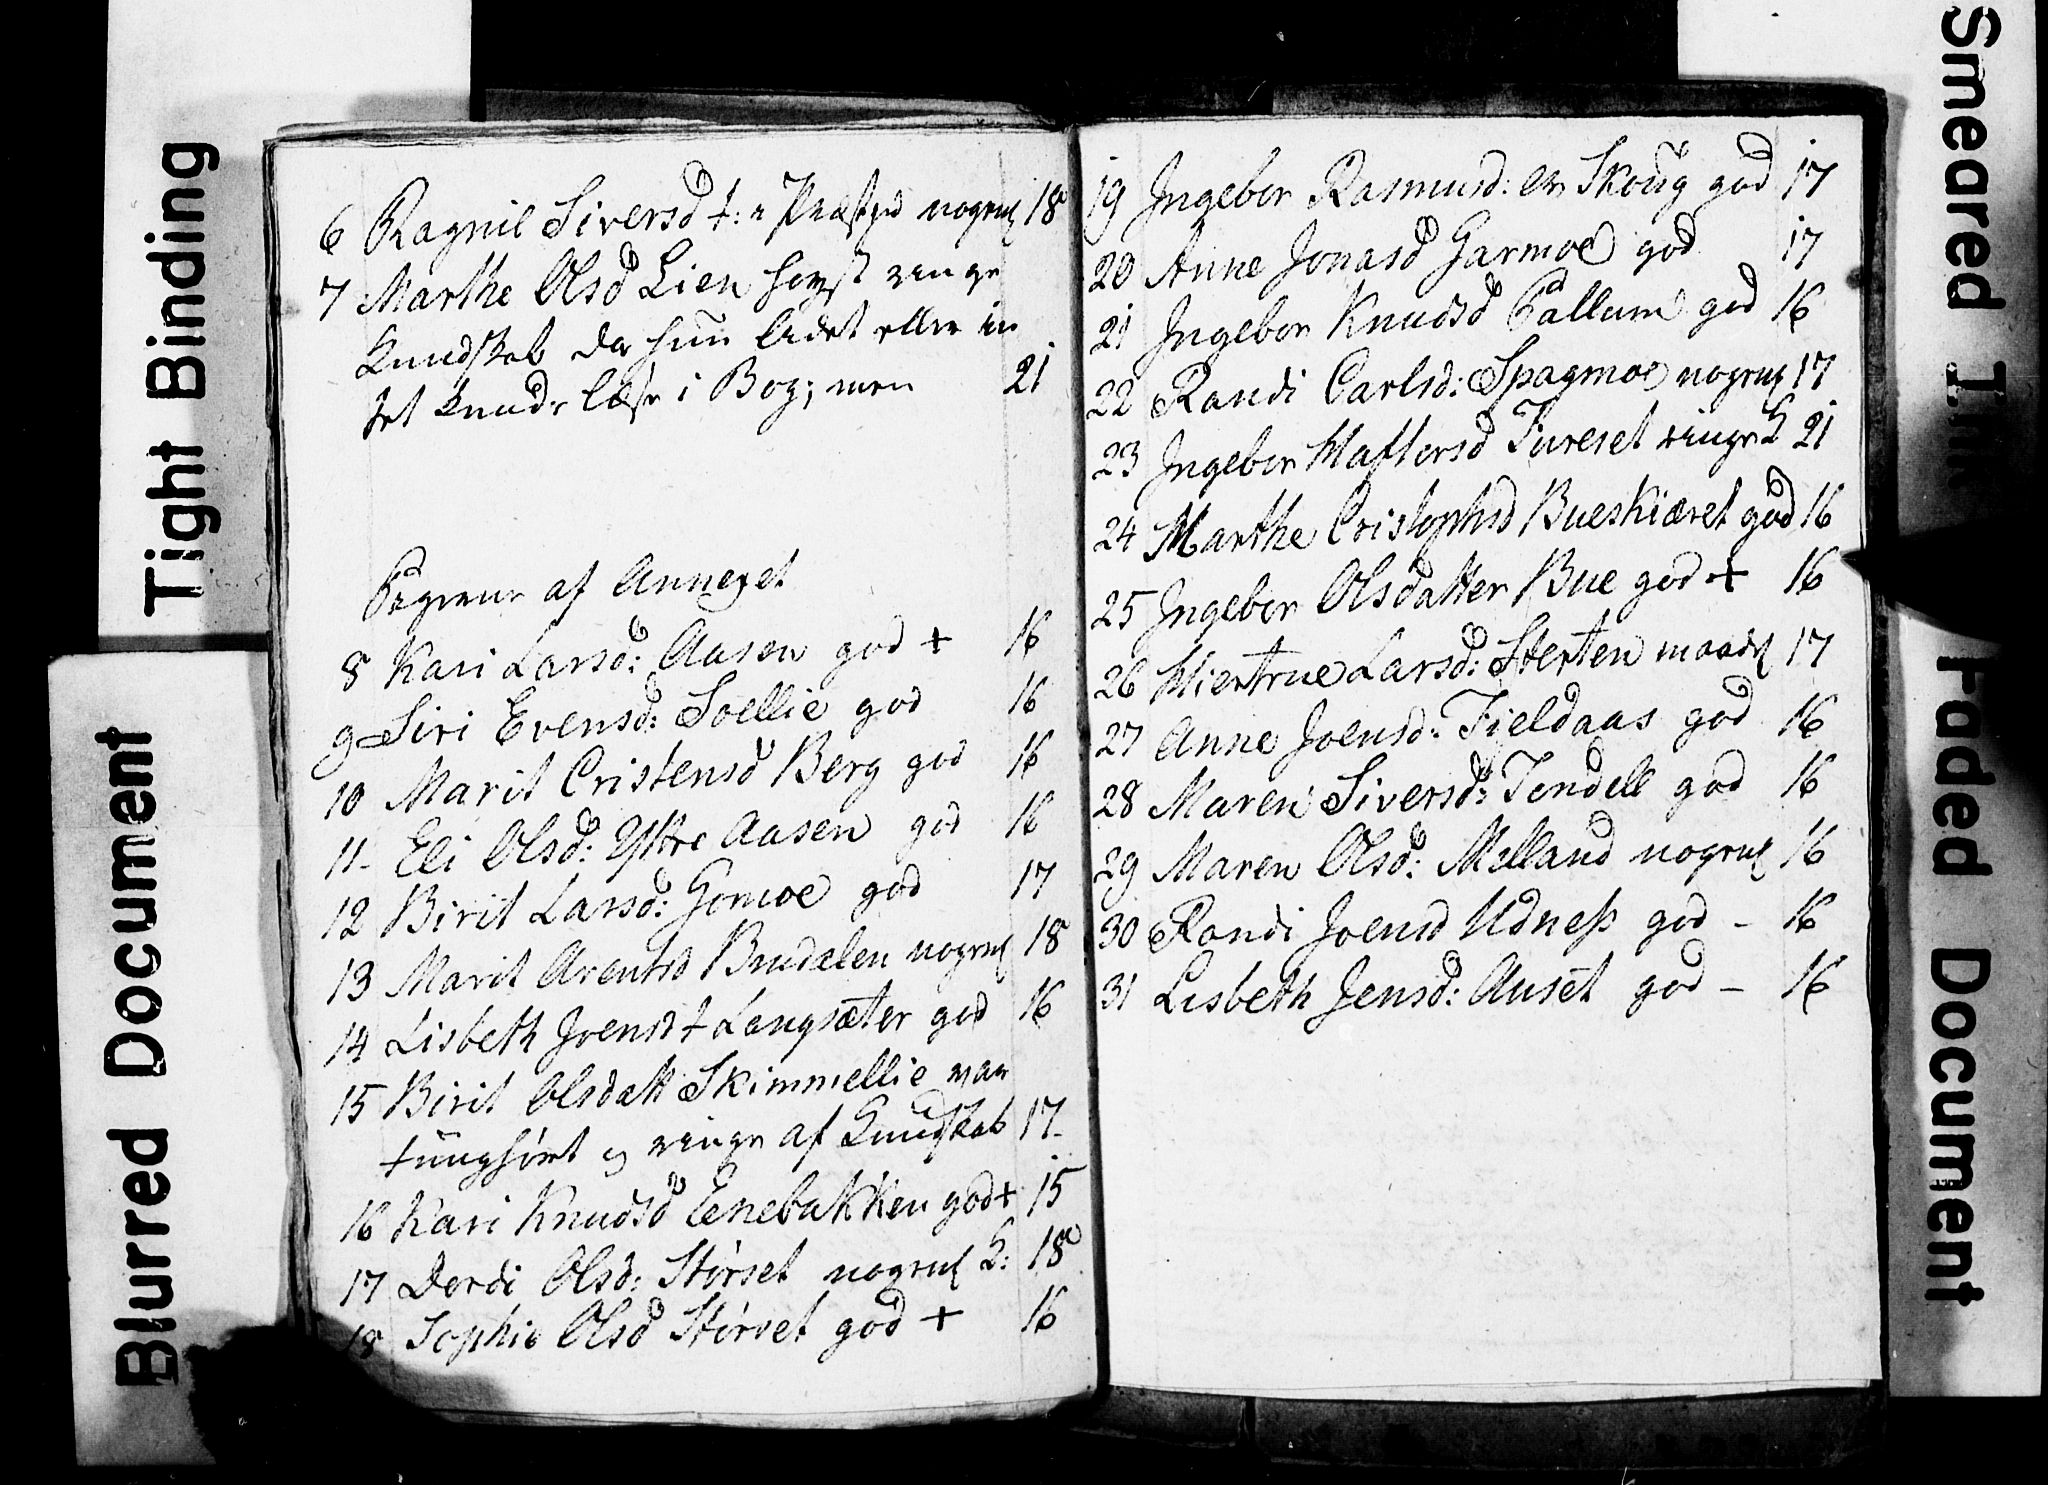 Tight Binding
Blurred Document
Smeared Ink
Faded Document
6 Ragnil Siversd t: nogenl 18
7 Marthe Olsd Lien høyst ringe
Kundskab da hun lidet eller in
tet kunde læse i Bog; men 21
Pigerne af Annexet
8 Kari Larsd: Aasen god + 16
9 Siri Evensd: Soellie god 16
10 Marit Cristensd Berg god 16
11 - Eli Olsd: Ystre Aasen god 16
12 Birit Larsd: Gomoe god 17
13 Marit Arentsd Brudalen nogenl 18
14 Lisbeth Joensd + Langsæter god 16
15 Birit Olsdatt Skimmellie var
tunghørt og ringe af Kundskab 17-
16 Kari Knudsd Enebakken god + 15
17 Dordi Olsd: Størset nogenl K: 18
18 Sophie Olsd Størset god + 16
19 Ingebor Rasmusd: Skoug god 17
20 Anne Jonasd Garmoe god 17
21 Ingebor Knudsd Pallum god 16
22 Randi Carlsd: Spagmoe nogenl 17
23 Ingebor Haftorsd ringe K 21
24 Marthe Cristophsd Bueskiæret god 16
25 Ingebor Olsdatter Bue god + 16
26 Hiertrue Larsd: Sterten maadl 17
27 Anne Joensd: Fieldaas god 16
28 Maren Siversd: Tendell god 16
29 Maren Olsd: Melland nogenl 16
30 Randi Joensd Udness god - 16
31 Lisbeth Jensd: Auset god - 16